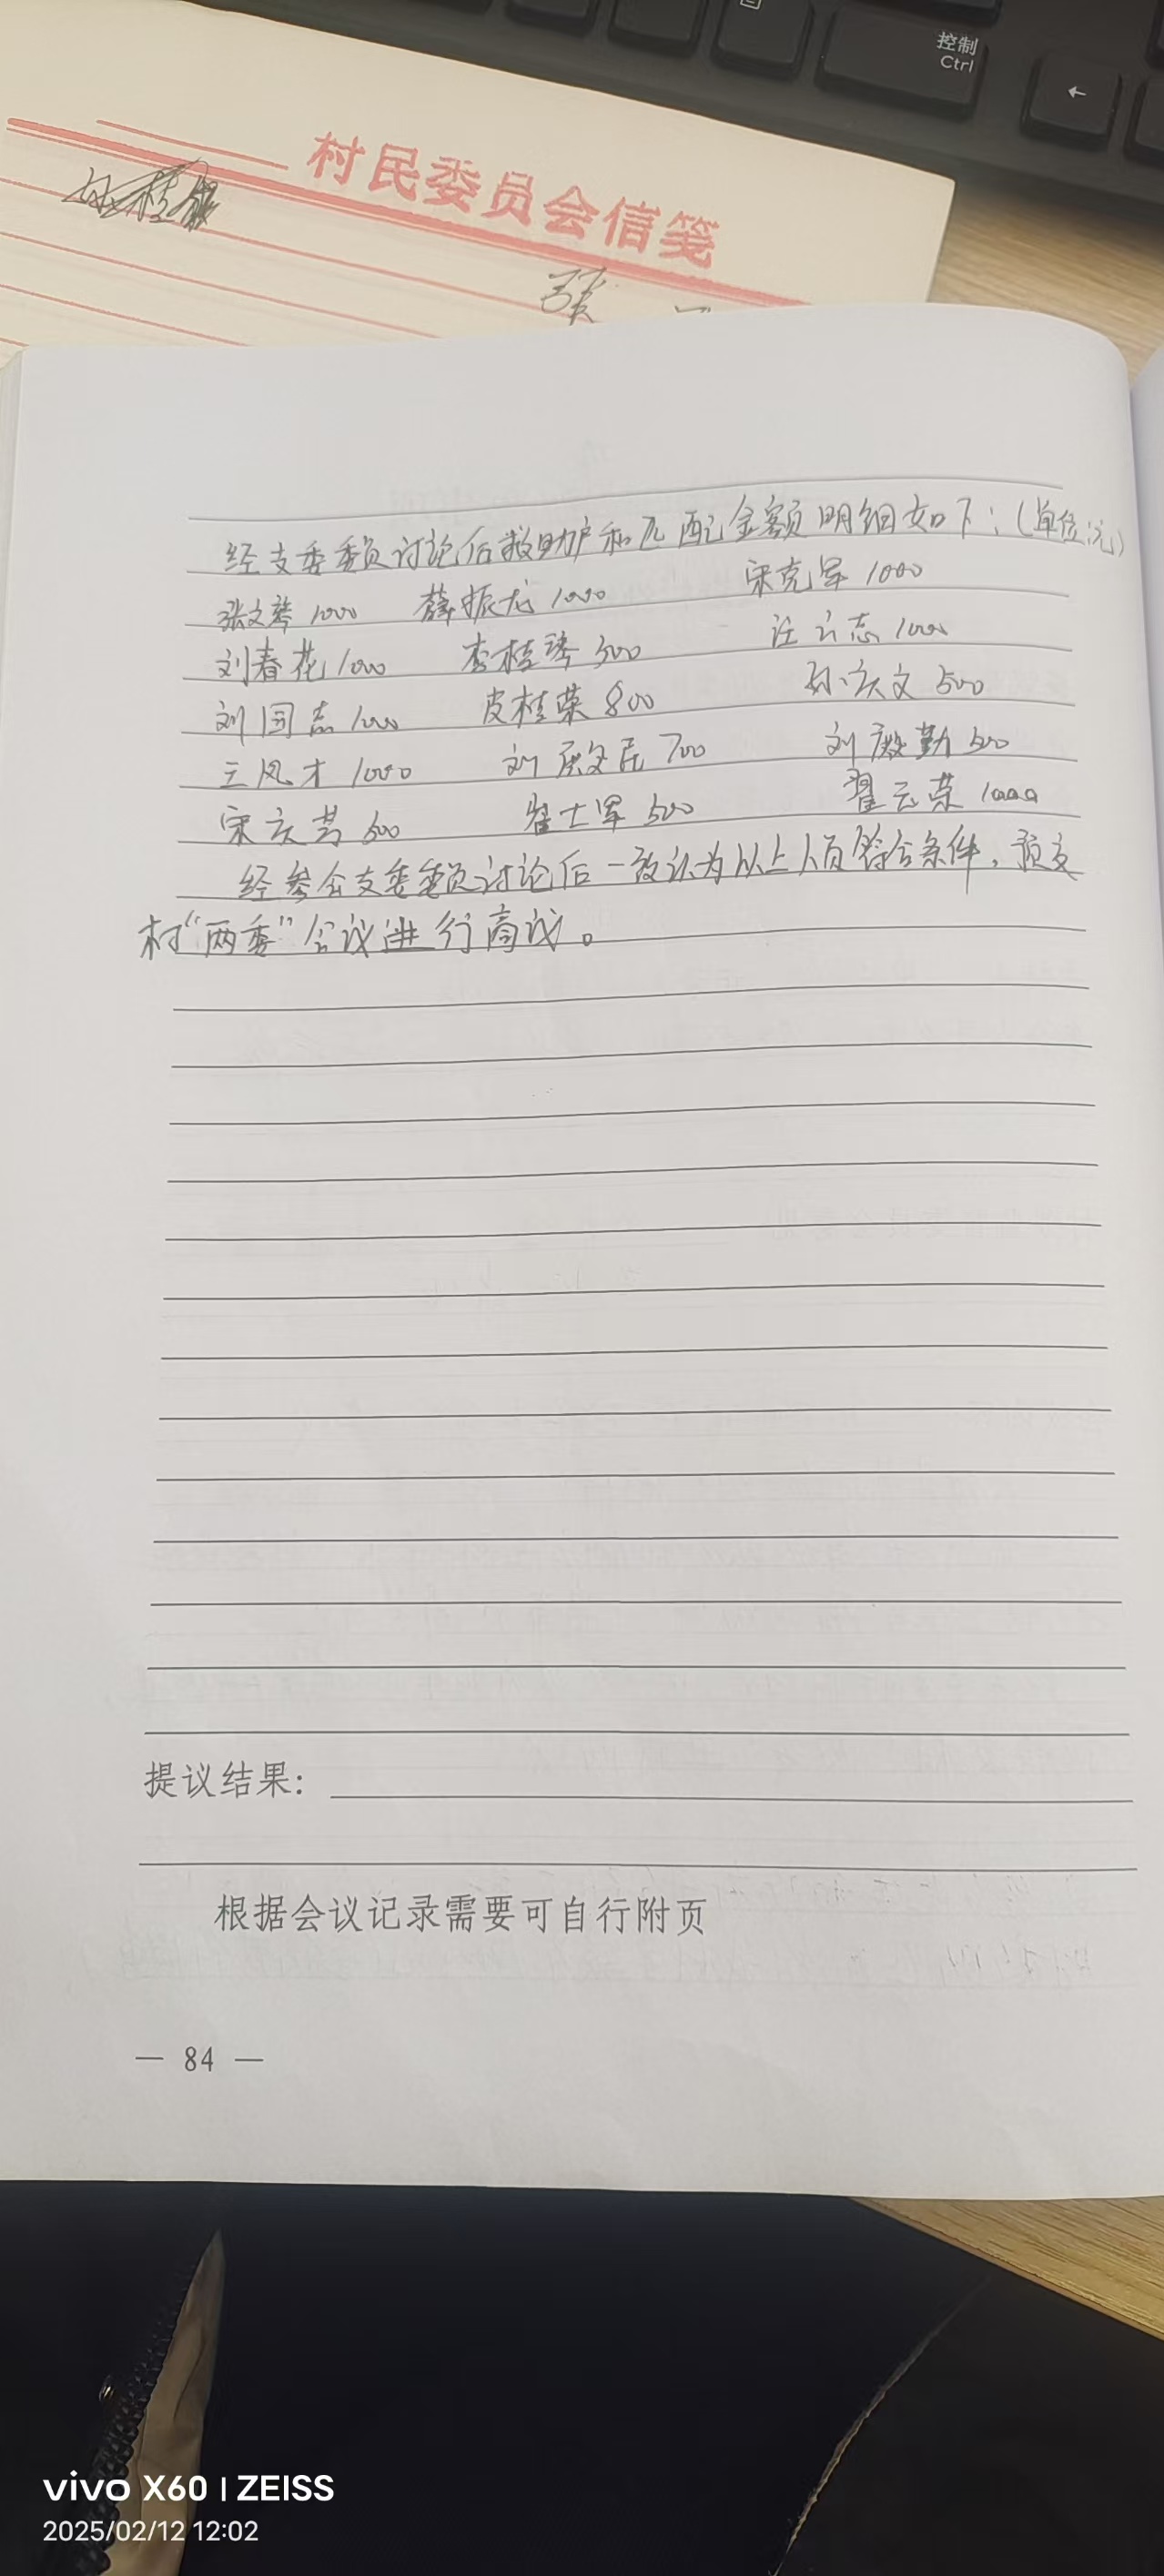 控制
Ctrl
←
村民委员会信笺
张
经支委委员讨论后救助户和匹配金额明细如下:(单位:元)
张文琴 1000 薛振龙 1000 宋克军 1000
刘春花 1000 李桂琴 500 汪云志 1000
刘国志 1000 皮桂荣 800 孙庆文 500
王凤才 1000 刘殿臣 700 刘殿勤 500
宋庆芳 500 崔士军 500 翟云荣 1000
经参会支委委员讨论后一致认为以上人员符合条件,预交
村“两委”会议进行商议。
提议结果:
根据会议记录需要可自行附页
— 84 —
vivo X60 | ZEISS
2025/02/12 12:02